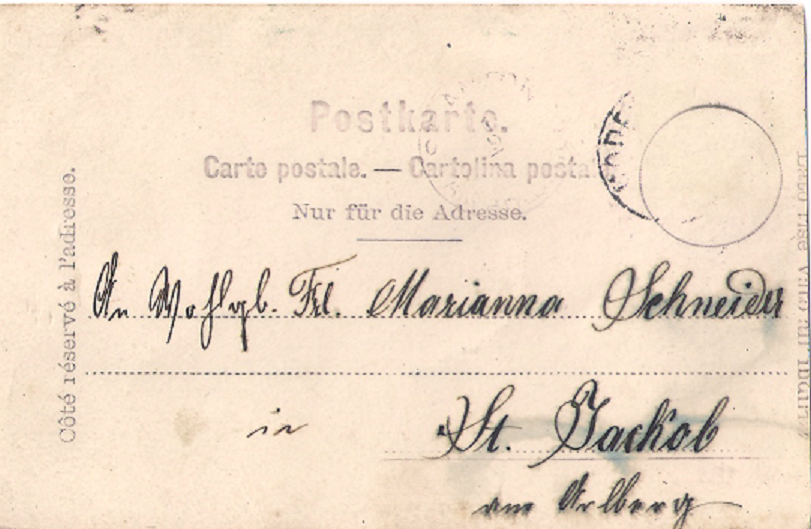 Postkarte.
Carte postale. — Cartolina posta
Nur für die Adresse.
Côté réservé à l'adresse.
An Wohlgb. Frl. Marianna Schneider
in
St. Jackob
am Arlberg